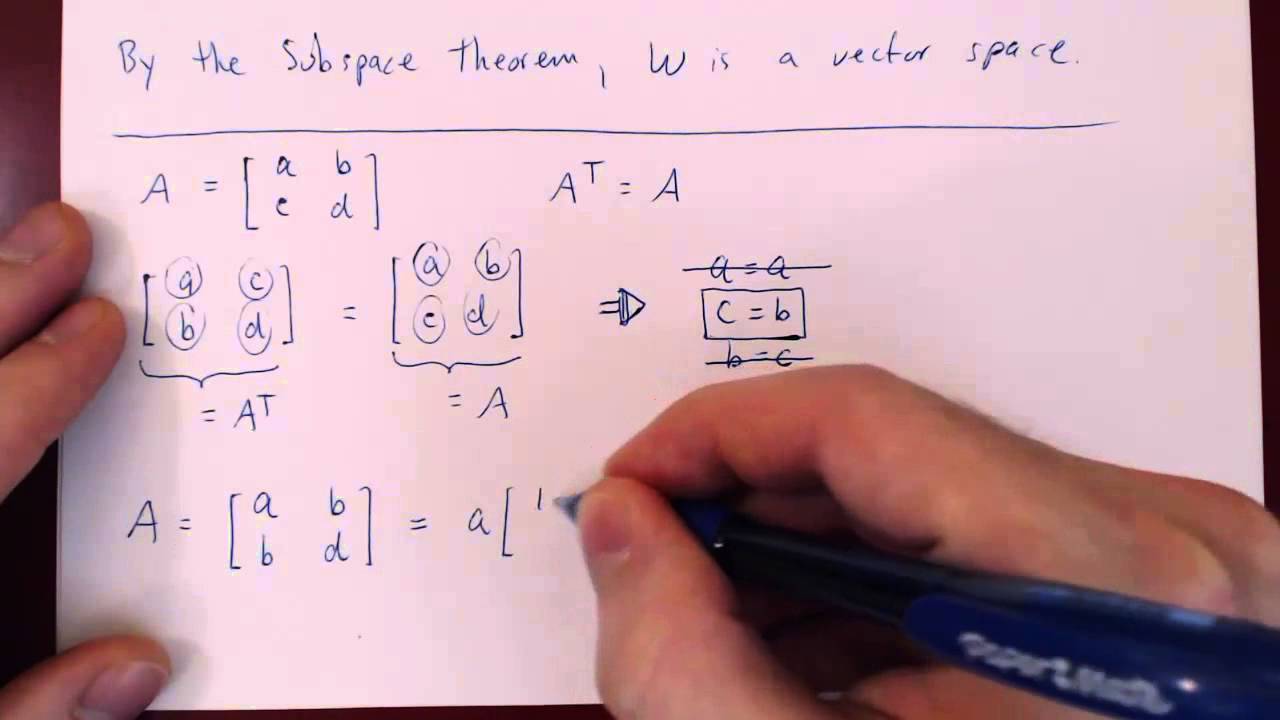 By the Subspace theorem, W is a vector space.
A = [ a b
c d ]
Aᵀ = A
[ a c
b d ] = [ a b
c d ] ⇒ a = a
c = b
b = c
= Aᵀ
= A
A = [ a b
b d ] = a [ 1